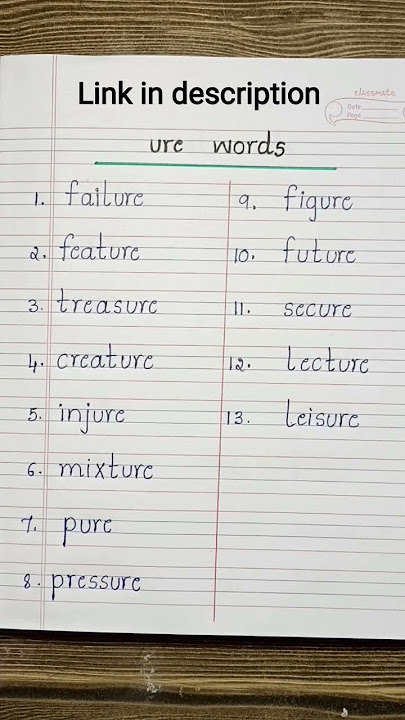 Link in description
classmate
Date
Page
ure words
1. failure
2. feature
3. treasure
4. creature
5. injure
6. mixture
7. pure
8. pressure
9. figure
10. future
11. secure
12. lecture
13. leisure